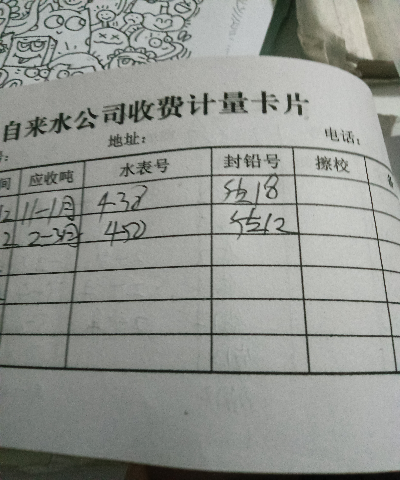 自来水公司收费计量卡片
地址： 电话：
间 应收吨 水表号 封铅号 擦校
12 11-1月 438
2 2-3月 450